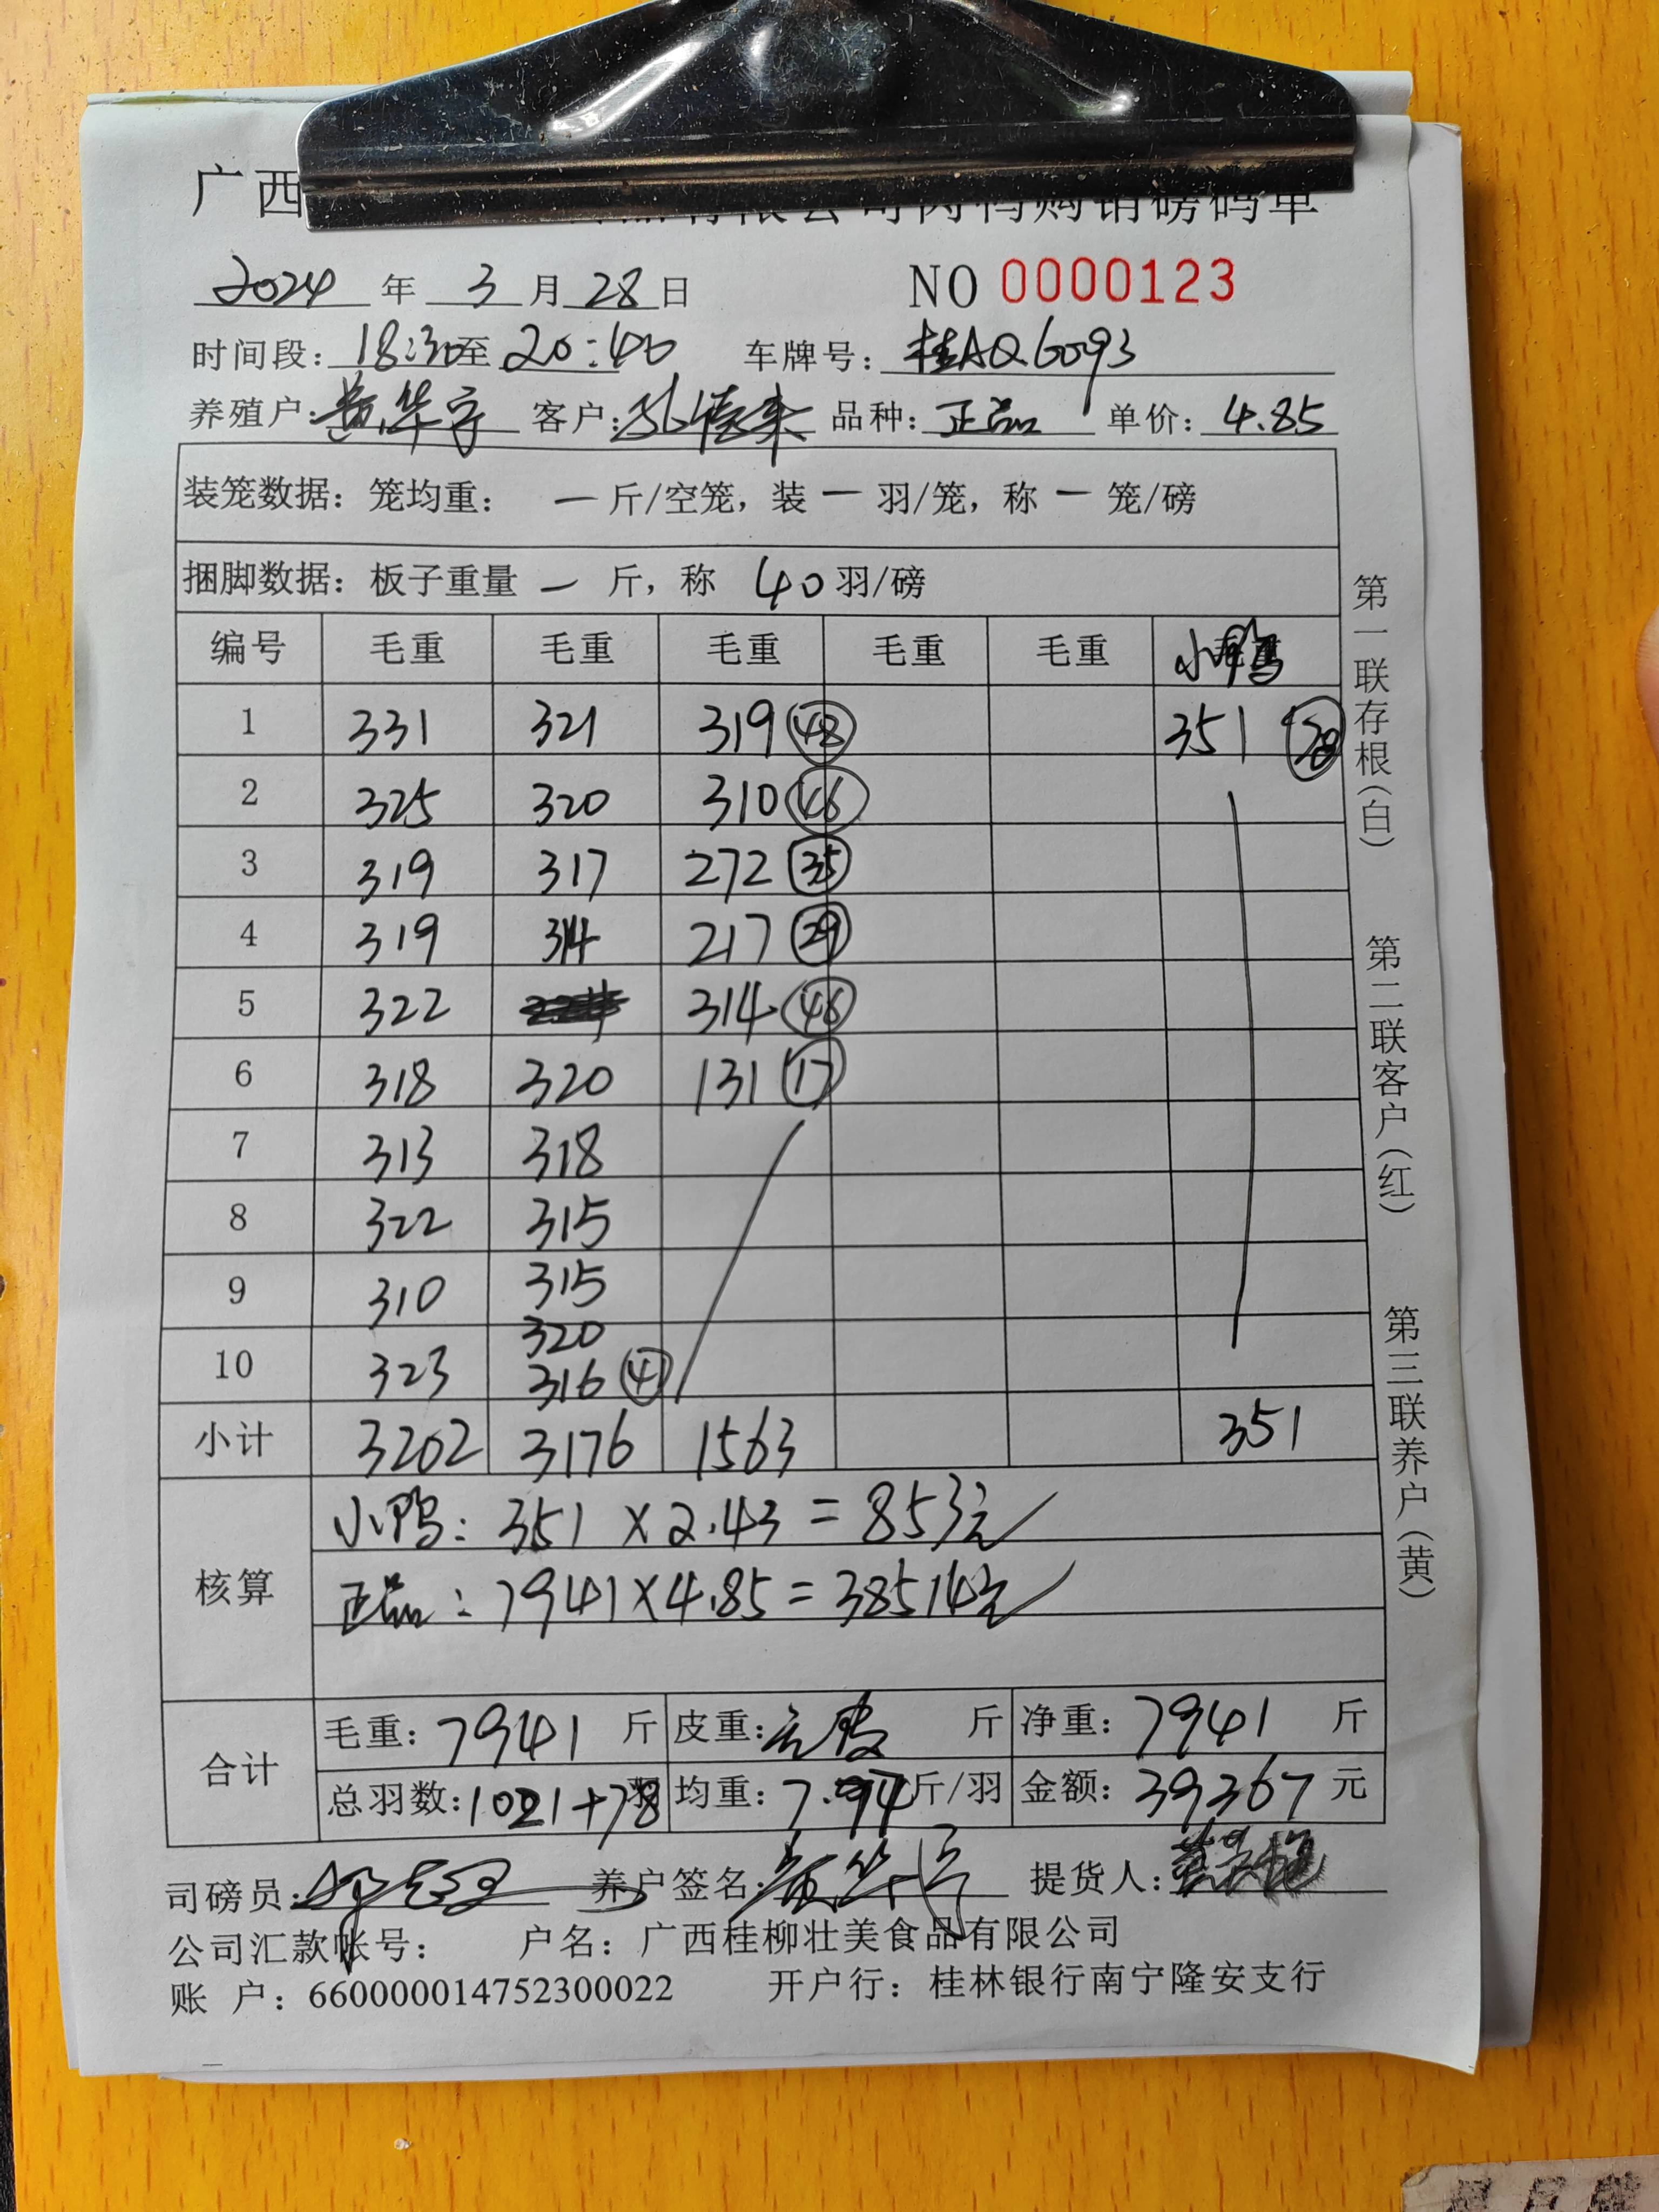 广西 有限公司肉鸭购销磅码单
2024 年 3 月 28 日 NO 0000123
时间段: 18:30 至 20:40 车牌号: 桂AQ6093
养殖户: 黄华宇 客户: 品种: 正品 单价: 4.85
装笼数据: 笼均重: 一 斤/空笼, 装 一 羽/笼, 称 一 笼/磅
捆脚数据: 板子重量 一 斤, 称 40 羽/磅
编号 毛重 毛重 毛重 毛重 毛重 小鸭
1 331 321 319 48 351 78
2 325 320 310 46
3 319 317 272 35
4 319 314 217 29
5 322 314 46
6 318 320 131 17
7 313 318
8 322 315
9 310 315
320
10 323 316 41
小计 3202 3176 1563 351
核算
小鸭: 351 × 2.43 = 853元
正品: 7941×4.85=38514元
合计
毛重: 7941 斤 皮重: 斤 净重: 7941 斤
总羽数: 1021+78 均重: 7.94 斤/羽 金额: 39367 元
司磅员: 养户签名: 黄华宇 提货人:
公司汇款帐号: 户名: 广西桂柳壮美食品有限公司
账 户: 660000014752300022 开户行: 桂林银行南宁隆安支行
第一联存根(白)
第二联客户(红)
第三联养户(黄)